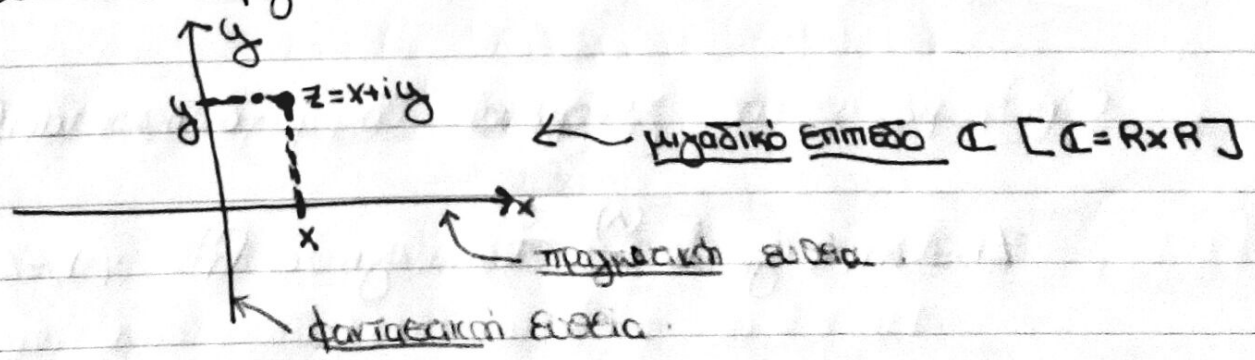 y
y z=x+iy
← μιγαδικό επίπεδο ℂ [ℂ=R×R]
x
x
πραγματική ευθεία
φανταστική ευθεία.